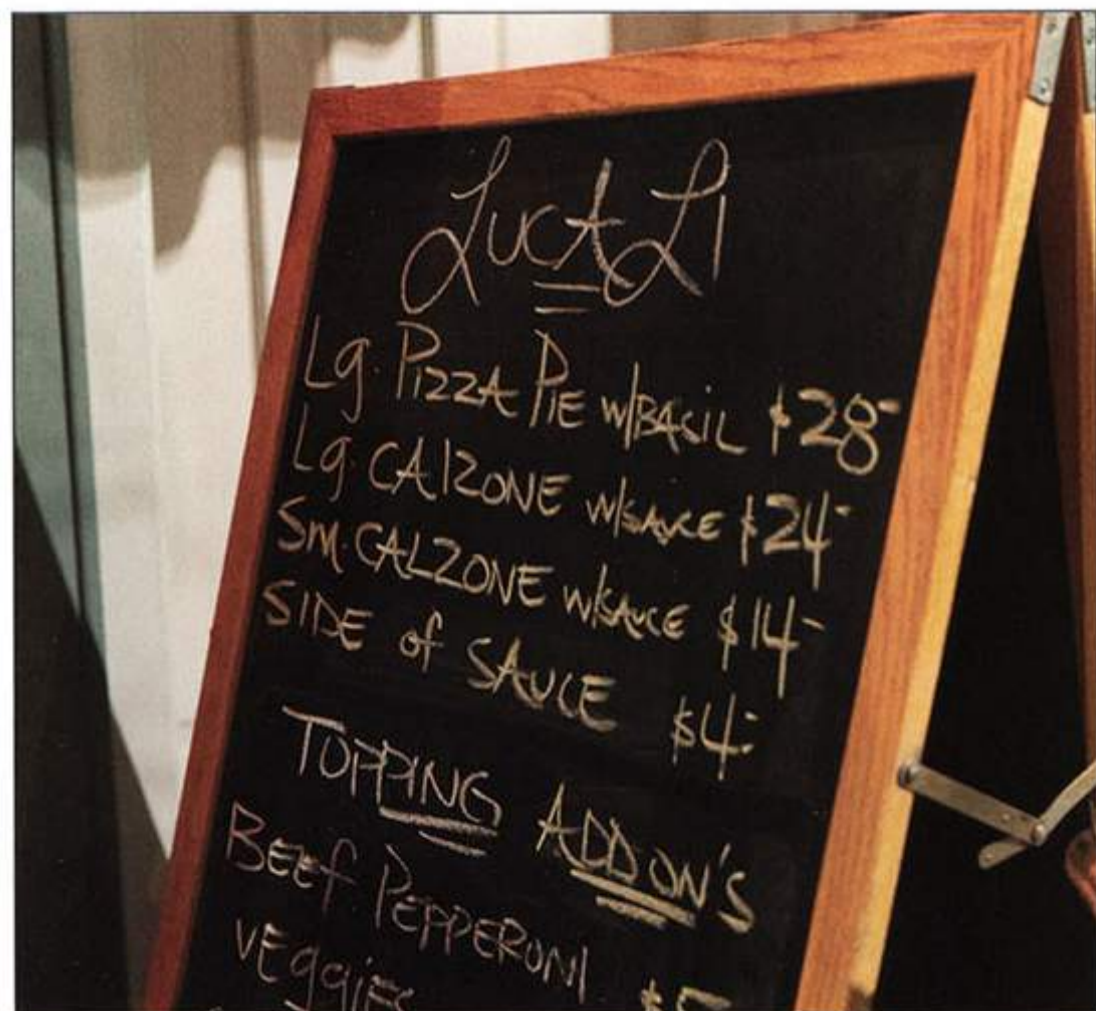 LucALi
Lg. Pizza Pie w/BASIL $28-
Lg. CAlZONE w/SAUCE $24-
Sm. CALZONE w/SAUCE $14-
SIDE of SAUCE $4-
TOPPING ADD ON'S
BEEf PEPPERONI $5
VEggiES